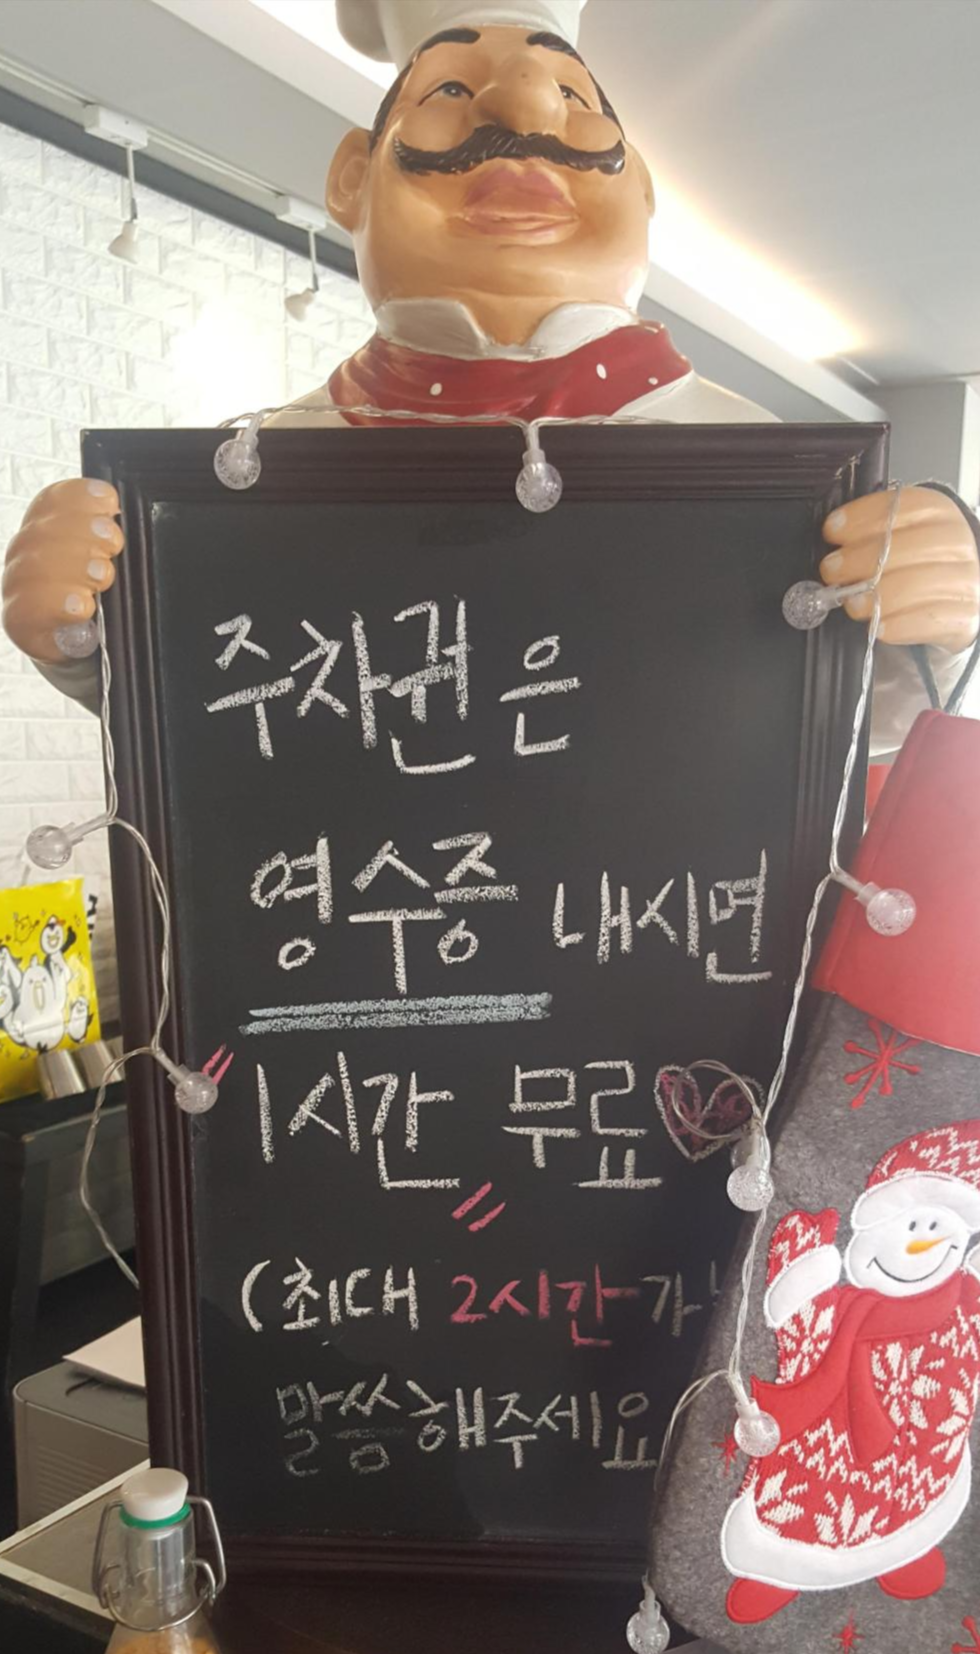 주차권은
영수증 내시면
1시간 무료♡
(최대 2시간
말씀해주세요